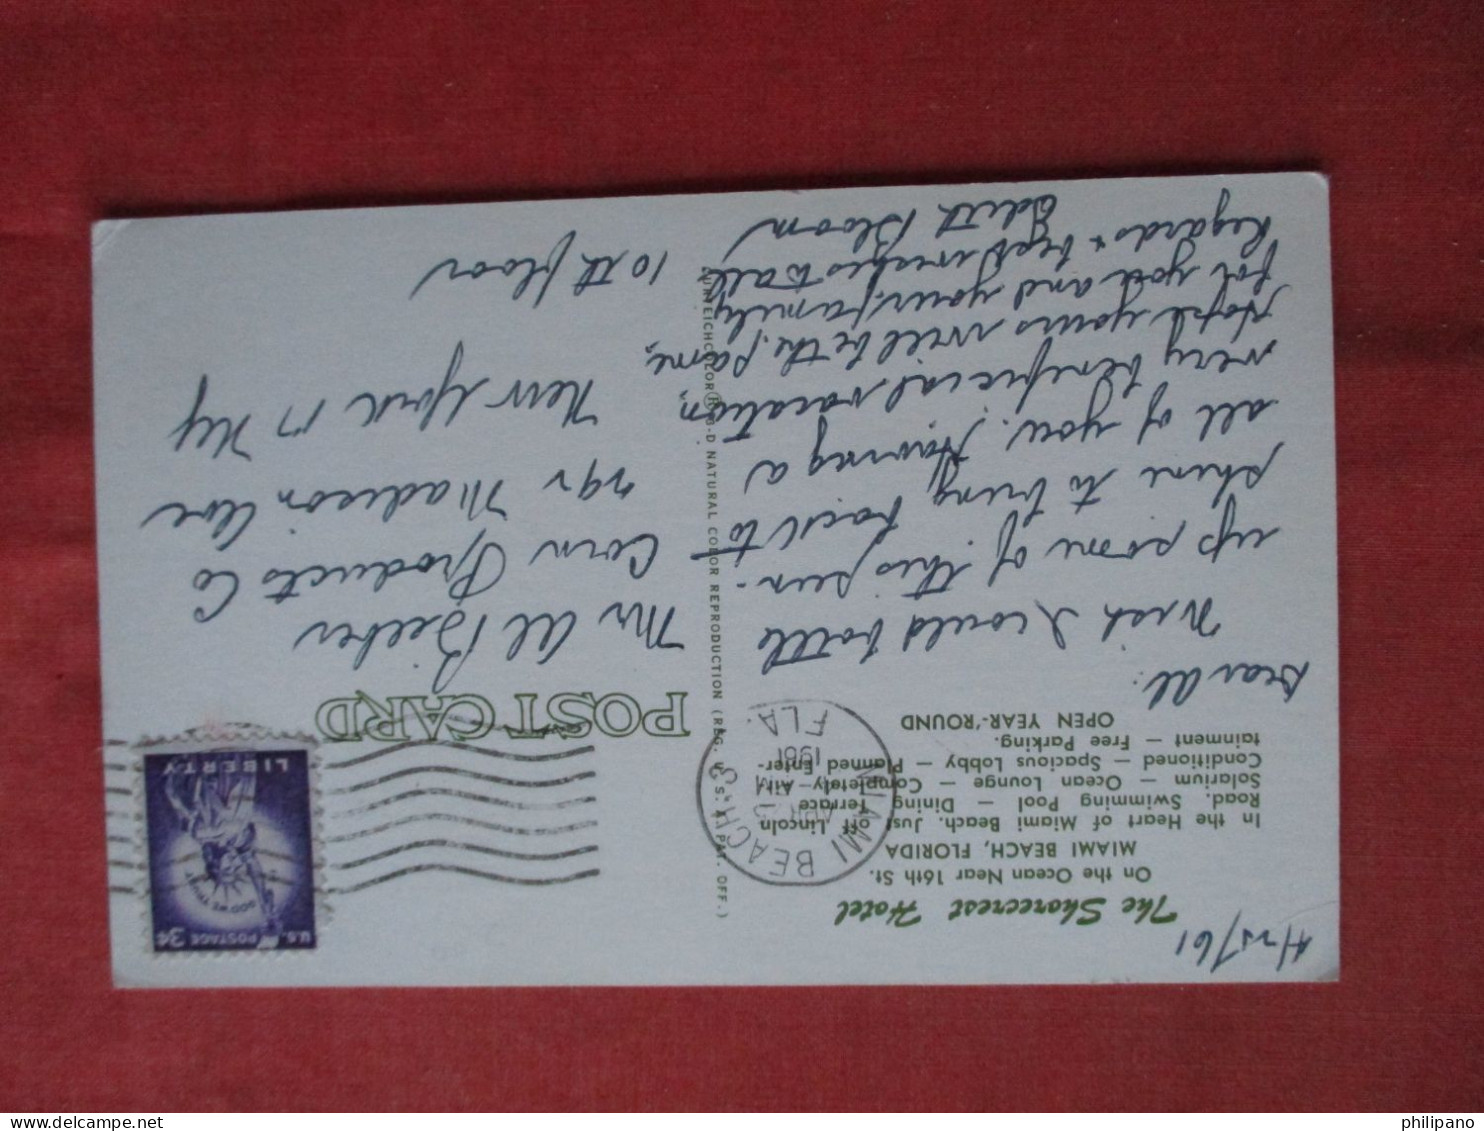 The Shorecrest Hotel
On the Ocean Near 16th St.
MIAMI BEACH, FLORIDA
In the Heart of Miami Beach. Just off Lincoln
Road. Swimming Pool — Dining Terrace
Solarium — Ocean Lounge — Completely Air
Conditioned — Spacious Lobby — Planned Enter-
tainment — Free Parking.
OPEN YEAR-'ROUND
Dear Al:
Wish I could bottle
up some of this sun-
shine to bring back to
all of you. Having a
very beneficial vacation.
Hope yours will be the same,
for you and your family.
Regards & best wishes to all.
Edith Bloom
CURTEICHCOLOR® 3-D NATURAL COLOR REPRODUCTION (REG. U.S.A. PAT. OFF.)
POST CARD
MIAMI BEACH
APR
1961
FLA.
U.S. POSTAGE 3¢
IN GOD WE TRUST
LIBERTY
Mr Al Beeber
Corn Products Co
Madison Ave
New York 17 NY
10th floor
philipano